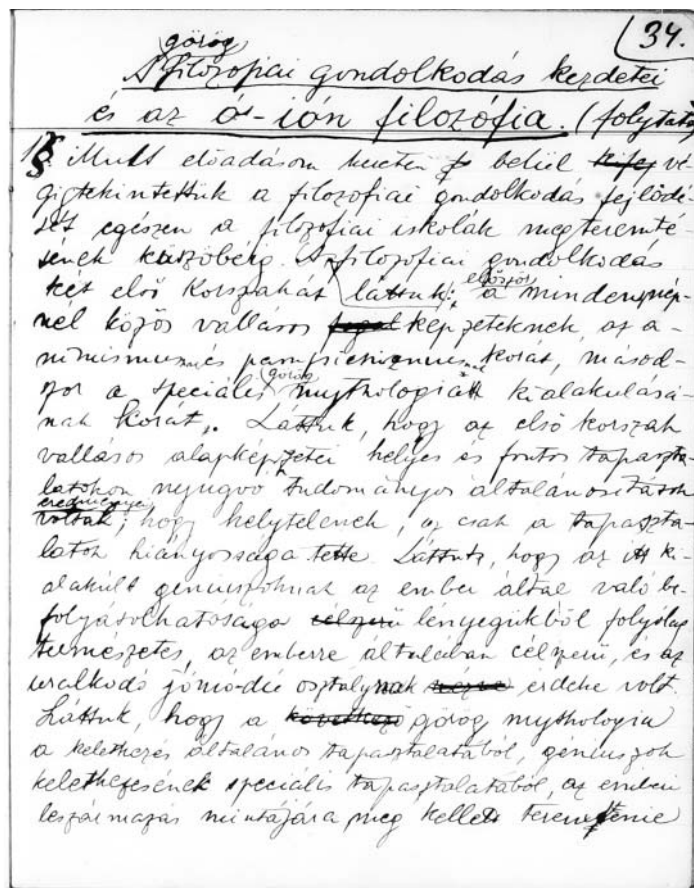 34.
görög
A filozofiai gondolkodás kezdetei
és az ó-ión filozófia. (folytatás
1§ Mult előadásom keretén belül vé-
gigtekintettük a filozofiai gondolkodás fejlődé-
sét egészen a filozofiai iskolák megteremté-
sének küszöbéig. A filozofiai gondolkodás
két első korszakát láttuk: először a minden nép-
nél közös vallásos képzeteknek, az a-
nimismus és pampsichizmus korát, másod-
szor a speciális görög mythologiák kialakulásá-
nak korát. Láttuk, hogy az első korszak
vallásos alapképzetei helyes és fontos tapaszta-
latokon nyugvó tudományos általánosítások
eredményei
voltak; hogy helytelenek, az csak a tapaszta-
latok hiányossága tette. Láttuk, hogy az itt ki-
alakult géniuszoknak az ember által való be-
folyásolhatósága lényegükből folyólag
természetes, az emberre általában célszerü, és az
uralkodó osztálynak érdeke volt.
Láttuk, hogy a görög mythologia
a keletkezés általános tapasztalatából, géniuszok
keletkezésének speciális tapasztalatából, az emberi
leszármazás mintájára meg kellett teremtenie